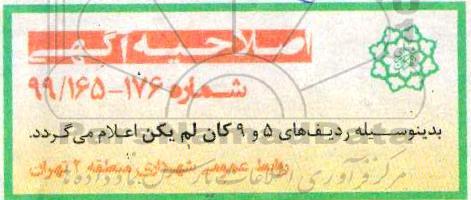 اصلاحیه آگهی
شماره ۱۷۶-۹۹/۱۶۵
بدینوسیله ردیف‌های ۵ و ۹ کان لم یکن اعلام می‌گردد.
روابط عمومی شهرداری منطقه ۲ تهران
مرکز فرآوری اطلاعات پارس نماد داده‌ها
ParsNamadData